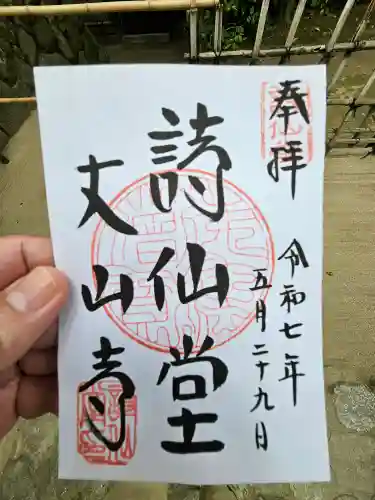 奉拝
令和七年
五月二十九日
詩仙堂
丈山寺